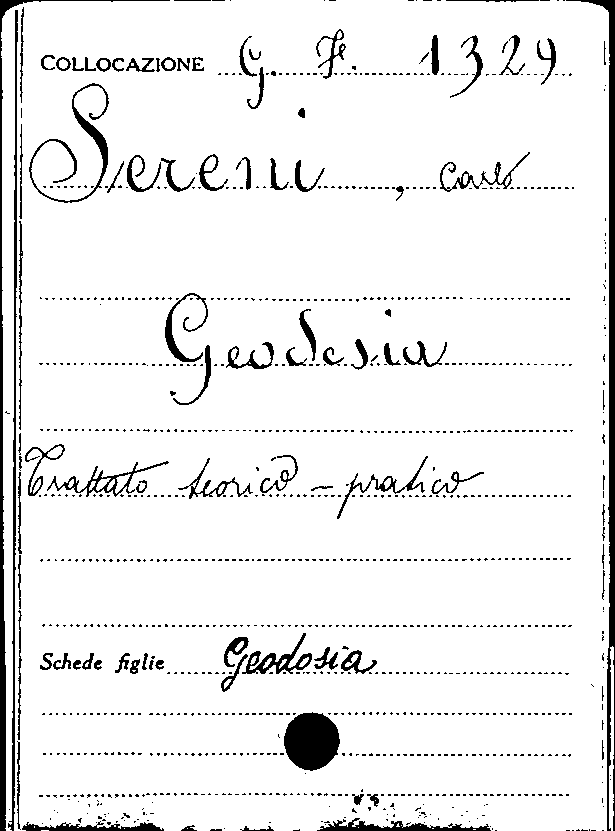 COLLOCAZIONE G. F. 1329
Sereni, Carlo
Geodesia
Trattato teorico - pratico
Schede figlie Geodosia